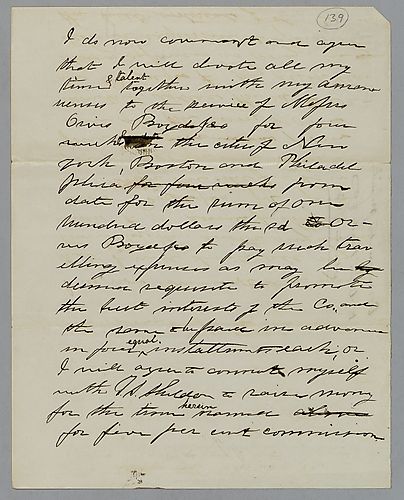 139
I do now covenant and agree
that I will devote all my
time & talent together with my aman
uensis to the service of Messrs
Orvis Boyd & Co for four
weeks in the city of New
york, Boston and Philadel
phia for four weeks from
date for the sum of one
hundred dollars the sd to Or-
vis Boyd & Co to pay such trav
elling expenses as may be
deemed requisite to promote
the best interests of the Co, and
the same to be paid in advance
in four equal installments each, or
I will agree to connect myself
with J H Sheldon to raise money
for the time herein named above
for five per cent commission